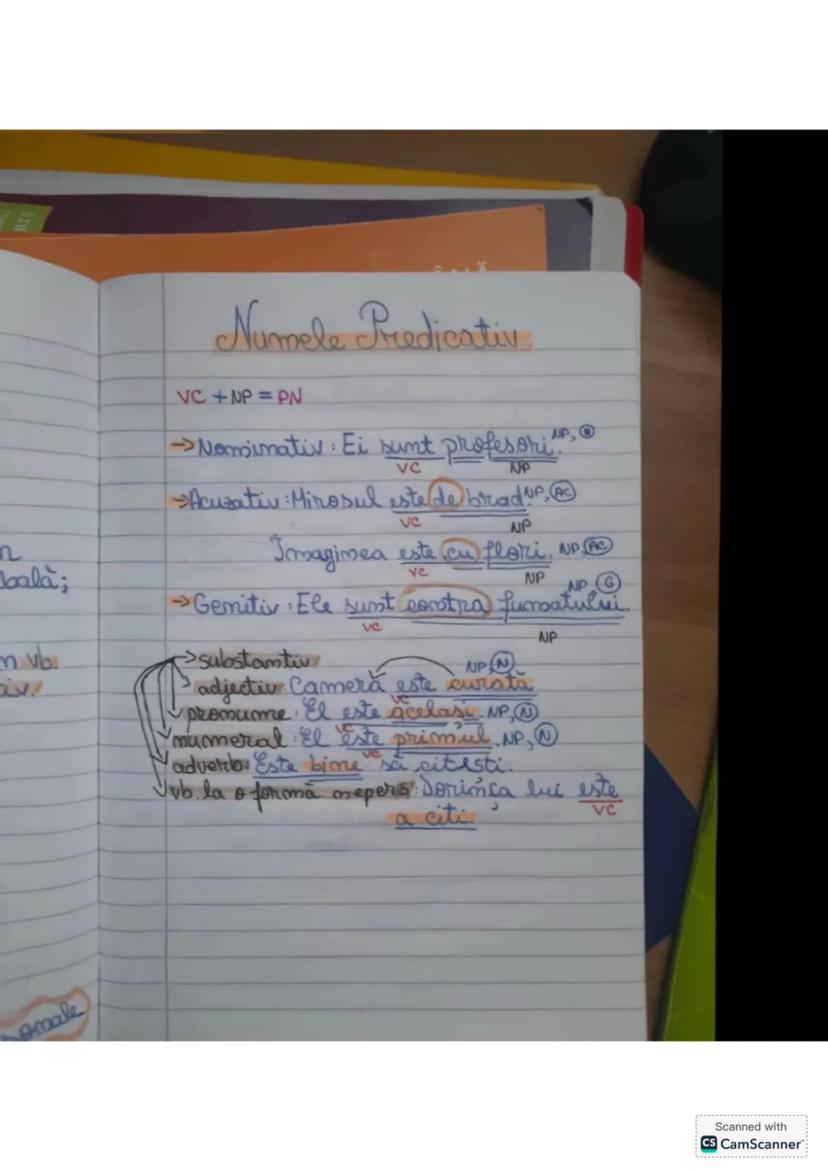 BIS
Numele Predicativ
VC + NP = PN
→Nominativ: Ei sunt profesori. NP, N
VC NP
→Acuzativ: Mirosul este de brad. NP, AC
VC NP
Imaginea este cu flori. NP, AC
VC NP
→Genitiv: Ele sunt contra fumatului. NP, G
VC NP
→substantiv
adjectiv: Camera este curată NP, N
VC
pronume: El este același. NP, N
VC
numeral: El este primul. NP, N
VC
adverb: Este bine să citești.
vb. la o formă nepers: Dorința lui este
VC
a citi.
n
oală;
n vb.
iv.
onale
Scanned with
CS CamScanner